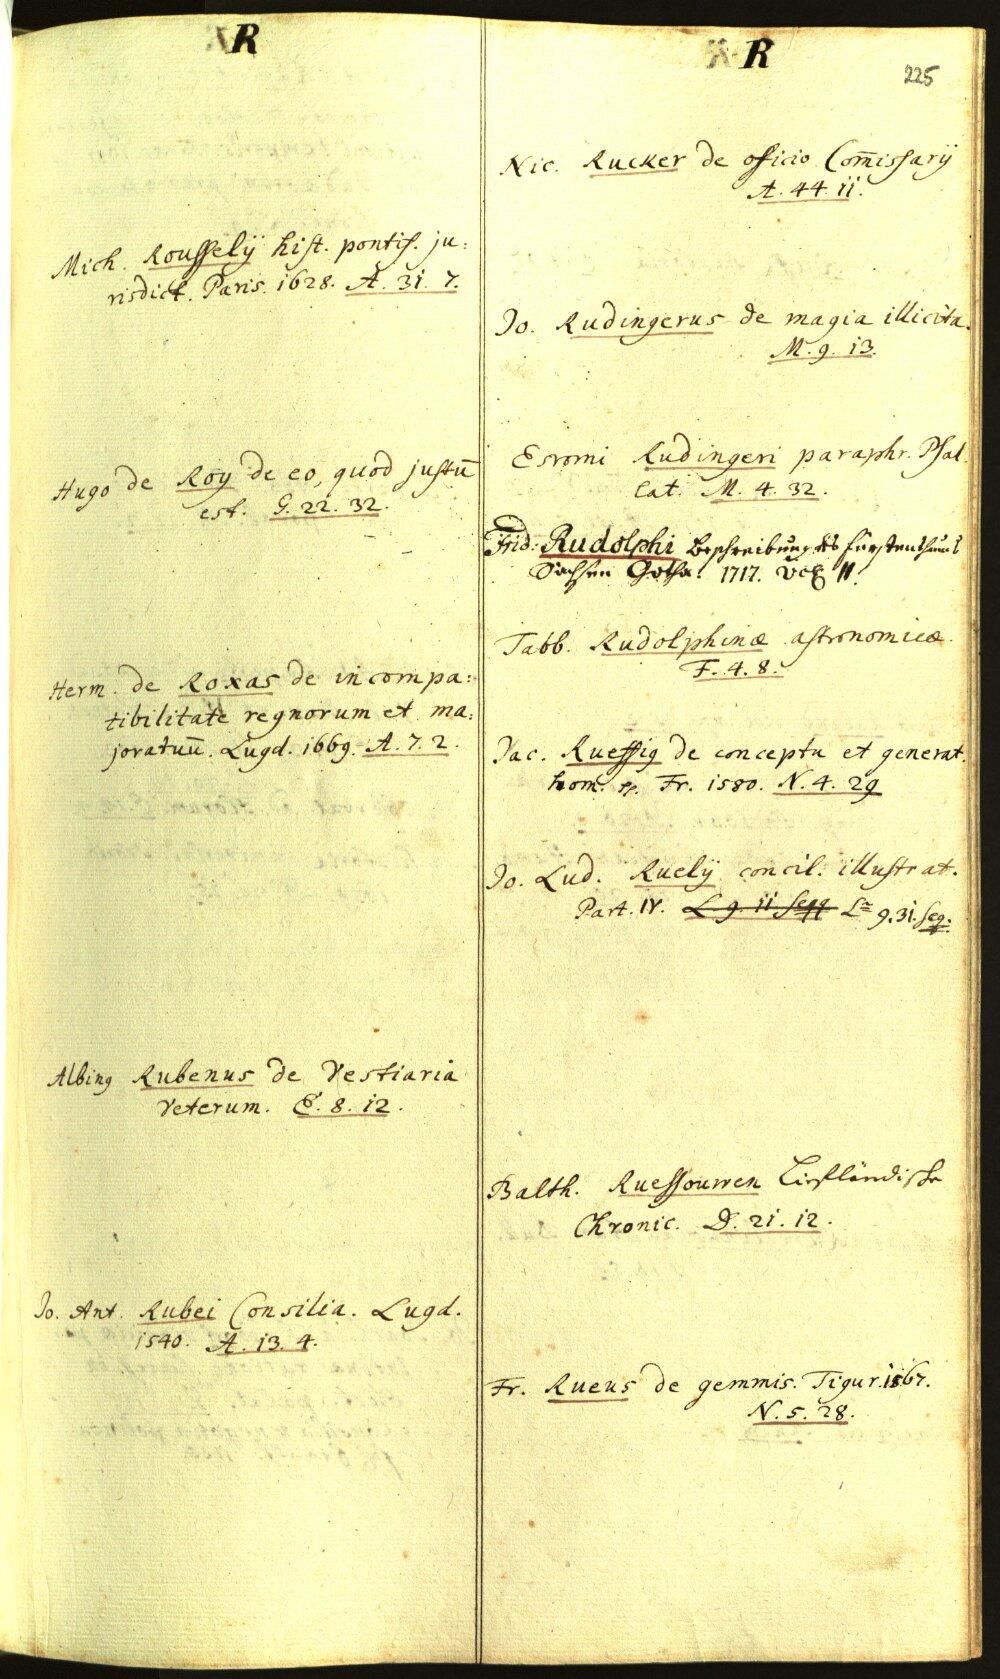 R
Mich. Rousselij hist. pontif. ju:
risdict. Paris. 1628. A. 31. 7.
Hugo de Roy de eo, quod justū
est. G. 22. 32.
Herm. de Roxas de incompa:
tibilitate regnorum et ma:
joratuū. Lugd. 1669. A. 7. 2.
Albinq Rubenus de Vestiaria
Veterum. E. 8. 12.
Jo. Ant. Rubei Consilia. Lugd.
1540. A. 13. 4.
R
225
Nic. Rucker de officio Com̄issarij
A. 44. 11.
Jo. Rudingerus de magia illicita.
M. 9. 13.
Esromi Rudingeri paraphr. Psal.
Lat. M. 4. 32.
Frid: Rudolphi Beschreibung des fürstenthums
Sachsen Gotha. 1717. 11.
Tabb. Rudolphinæ astronomicæ.
F. 4. 8.
Jac. Rueffig de conceptu et generat.
hom. Fr. 1580. N. 4. 29
Jo. Lud. Ruelij concil. illustrat.
Part. IV. L 9. 11 seqq L 9. 31. seq.
Balth. Ruessouwen Liefländische
Chronic. D. 21. 12.
Fr. Rueus de gemmis. Tigur. 1567.
N. 5. 28.